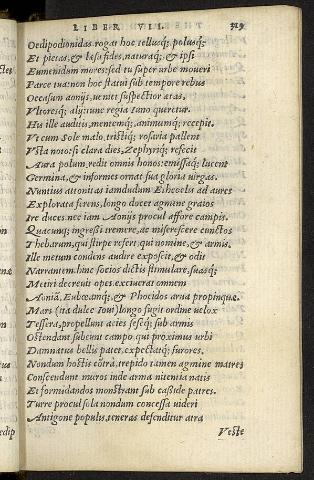 LIBER VII. 329
Oedipodionidas.rogat hoc tellusq; polusq;
Et pietas, & læsa fides, naturaq; & ipsi
Eumenidum mores: sed tu super urbe moueri
Parce tua: non hoc statui sub tempore rebus
Occasum aonijs, ueniet suspectior ætas,
Vltoresq; alij: nunc regia Iuno queretur.
His ille auditis, mentemq; animumq; recepit.
Vt cum Sole malo, tristiq; rosaria pallent
Vsta noto: si clara dies, Zephyriq; refecit
Aura polum, redit omnis honos: emissaq; lucent
Germina, & informes ornat sua gloria uirgas.
Nuntius attonitas iamdudum Etheoclis ad aures
Explorata ferens, longo docet agmine graios
Ire duces. nec iam Aonijs procul affore campis.
Quacunq; ingressi tremere, ac miserescere cunctos
Thebarum, qui stirpe refert, qui nomine, & armis.
Ille metum condens audire exposcit, & odit
Narrantem. hinc socios dictis stimulare, suasq;
Metiri decreuit opes. exciuerat omnem
Aoniã, Eubœamq; & Phocidos arua propinquæ.
Mars (ita dulce Ioui) longo fugit ordine uelox
Tessera, propellunt acies seseq; sub armis
Ostendant. subeunt campo. qui proximus urbi
Damnatus bellis patet, expectatq; furores.
Nondum hostis cõtrà, trepido tamen agmine matres
Conscendunt muros inde arma nitentia natis
Et formidandos monstrant sub casside patres.
Turre procul sola nondum concessa uideri
Antigone populis, teneras defenditur atra
Veste